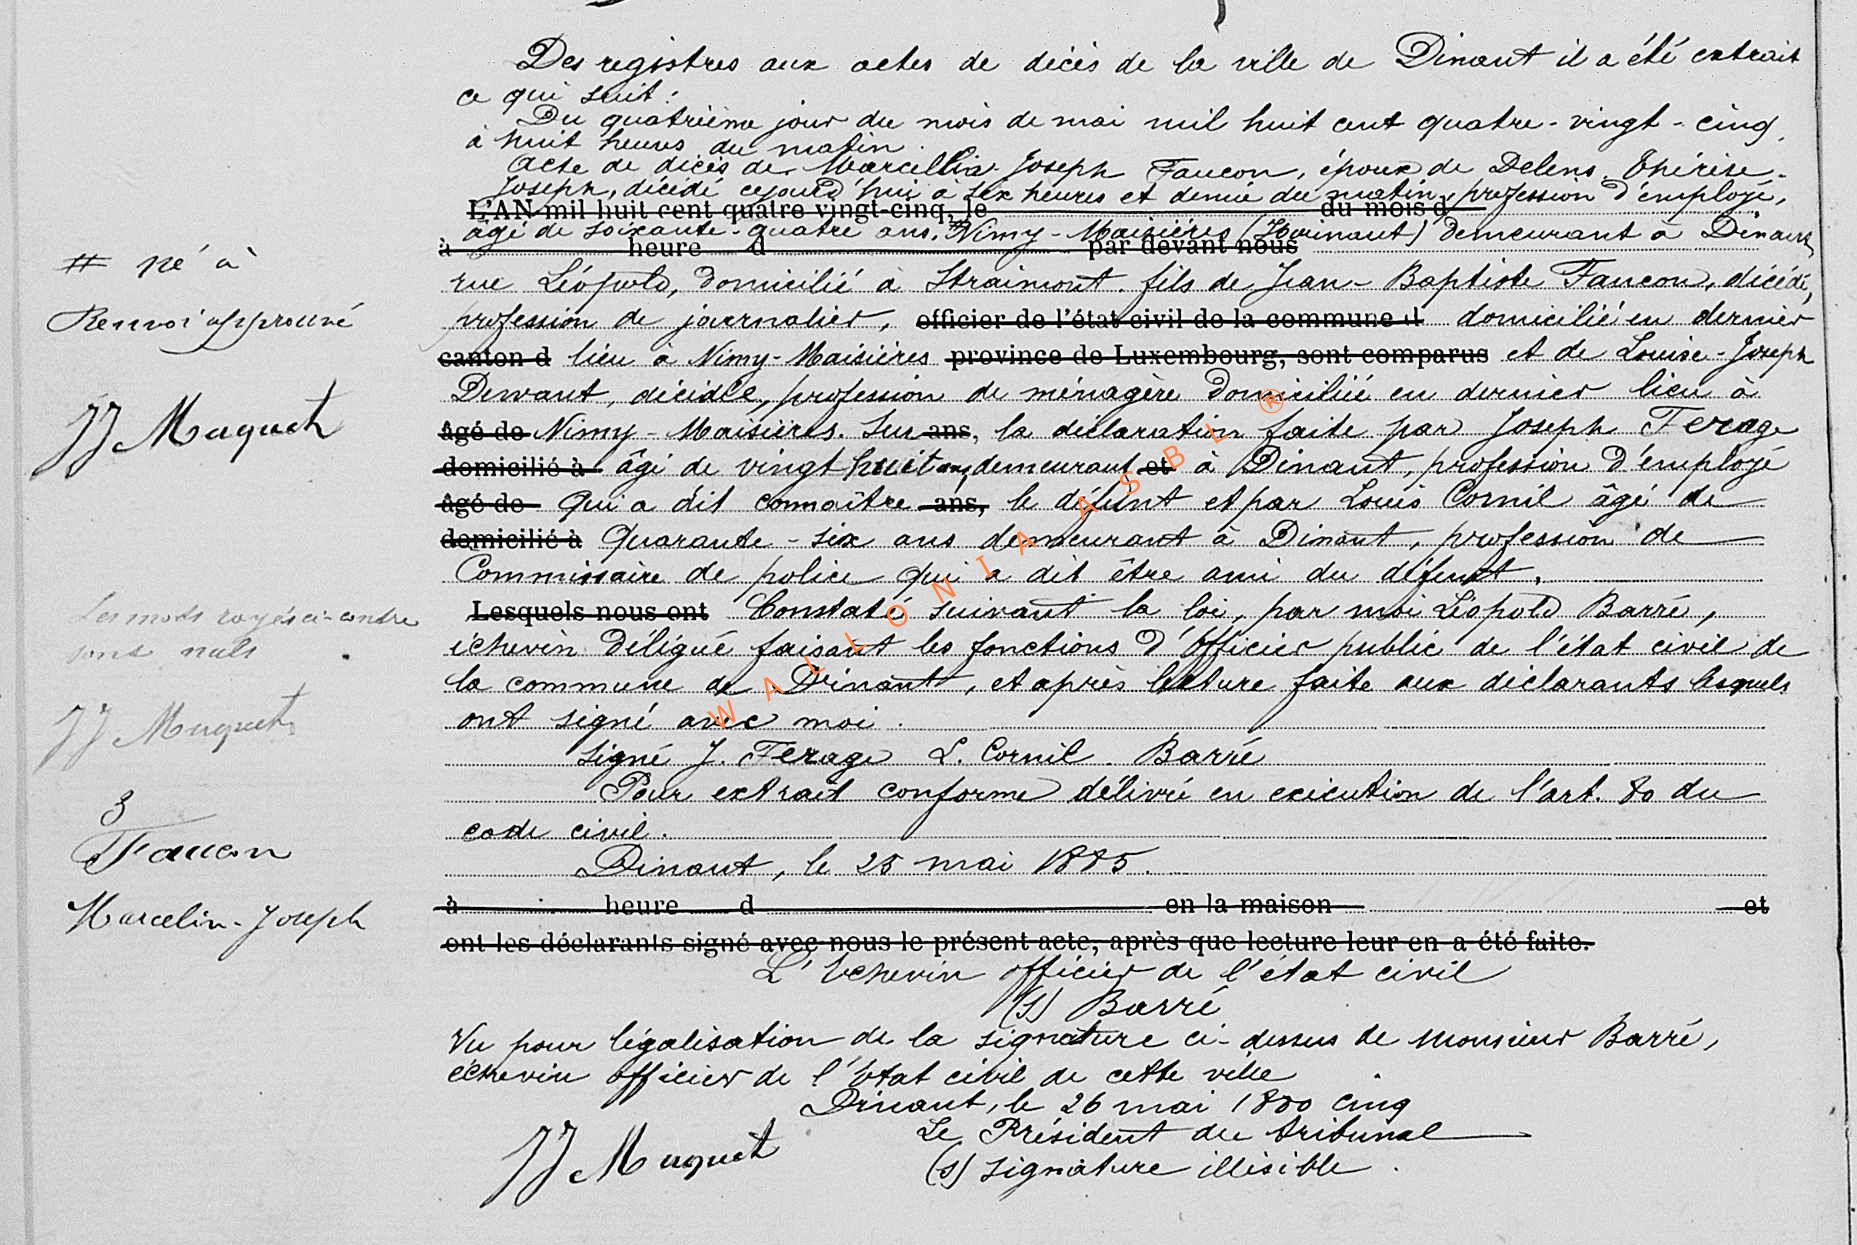 Des registres aux actes de décès de la ville de Dinant il a été extrait
ce qui suit :
Du quatrième jour du mois de mai mil huit cent quatre-vingt-cinq,
à huit heures du matin.
Acte de décès de Marcellin Joseph Faucon, époux de Delens Thérèse-
Joseph, décédé cejourd'hui à six heures et demie du matin, profession d'employé,
L'AN mil huit cent quatre vingt-cinq, le du mois d
âgé de soixante-quatre ans, # Nimy-Maisières (Hainaut) demeurant à Dinant,
à heure d par devant nous
# né à
rue Léopold, domicilié à Straimont. fils de Jean-Baptiste Faucon, décédé,
Renvoi approuvé
profession de journalier, officier de l'état civil de la commune d domicilié en dernier
canton d lieu à Nimy-Maisières province de Luxembourg, sont comparus et de Louise-Joseph
décédée, profession de ménagère domiciliée en dernier lieu à
JJ Muquet
âgé de Nimy-Maisières. Sur ans, la déclaration faite par Joseph Ferage
domicilié à âgé de vingt huit ans, demeurant et à Dinant, profession d'employé
âgé de qui a dit connaître ans, le défunt et par Louis Cornil âgé de
domicilié à Quarante-six ans demeurant à Dinant, profession de
Commissaire de police qui a dit être ami du défunt.
Les mots rayés ci-contre
sont nuls
Lesquels nous ont Constaté suivant la loi, par moi Léopold Barré,
échevin délégué faisant les fonctions d'Officier public de l'état civil de
la commune de Dinant, et après lecture faite aux déclarants lesquels
JJ Muquet
ont signé avec moi.
Signé J. Ferage L. Cornil. Barré
Pour extrait conforme délivré en exécution de l'art. 80 du
3
code civil.
Faucon
Dinant, le 25 mai 1885.
Marcelin-Joseph
à heure d en la maison et
ont les déclarants signé avec nous le présent acte, après que lecture leur en a été faite.
L'Echevin officier de l'état civil
(s) Barré
Vu pour légalisation de la signature ci-dessus de Monsieur Barré,
échevin officier de l'Etat civil de cette ville
Dinant, le 26 mai 1880 cinq
Le Président du tribunal
JJ Muquet
(s) signature illisible.
WALLONIA ASBL ®